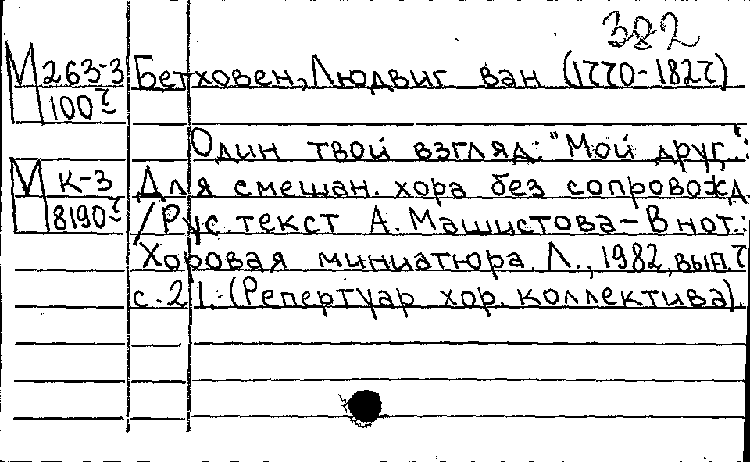 382
М 263-3 Бетховен, Людвиг ван (1770-1827)
100
Один твой взгляд: "Мой друг":
М К-3 Для смешан. хора без сопровожд.
8190 /Рус. текст А. Машистова – В нот.:
Хоровая миниатюра. Л., 1982, вып. 7
с. 21. (Репертуар хор. коллектива).